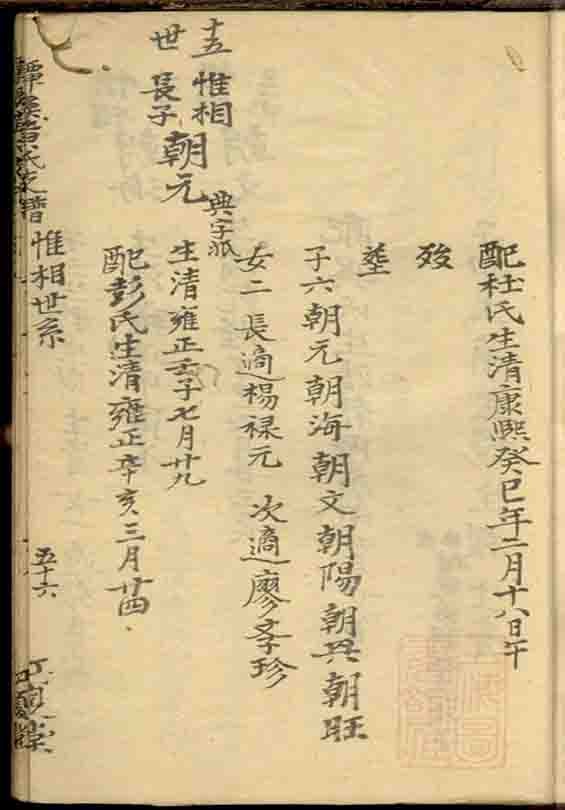 配杜氏生清康熙癸巳年二月十八日午
歿
塟
子六朝元朝海朝文朝陽朝興朝旺
女二長適楊祿元 次適廖孝珍
十五世
惟相長子
朝元
典字派
生清雍正壬子七月廿九
配彭氏生清雍正辛亥三月廿四
惟相世系
五十六